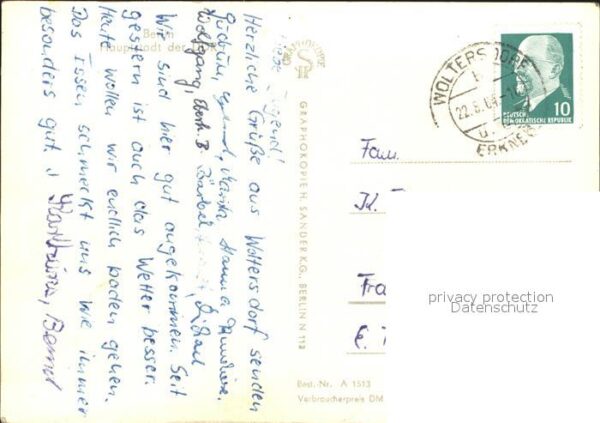 Berlin
Hauptstadt der DDR
Jugend!
Herzliche Grüße aus Woltersdorf senden
Gudrun, Marita, Hanna
Wolfgang, Bärbel
Wir sind hier gut angekommen. Seit
gestern ist auch das Wetter besser.
Heut wollen wir endlich baden gehen.
Das Essen schmeckt uns wie immer
besonders gut.
Bernd
GRAPHOKOPIE
GRAPHOKOPIE H. SANDER K.G., BERLIN N 113
Best.-Nr. A 1513
Verbraucherpreis DM
WOLTERSDORF
b
22.
ü.
ERKNER
10
DEUTSCHE
DEMOKRATISCHE REPUBLIK
Fam.
K.
Fra
privacy protection
Datenschutz